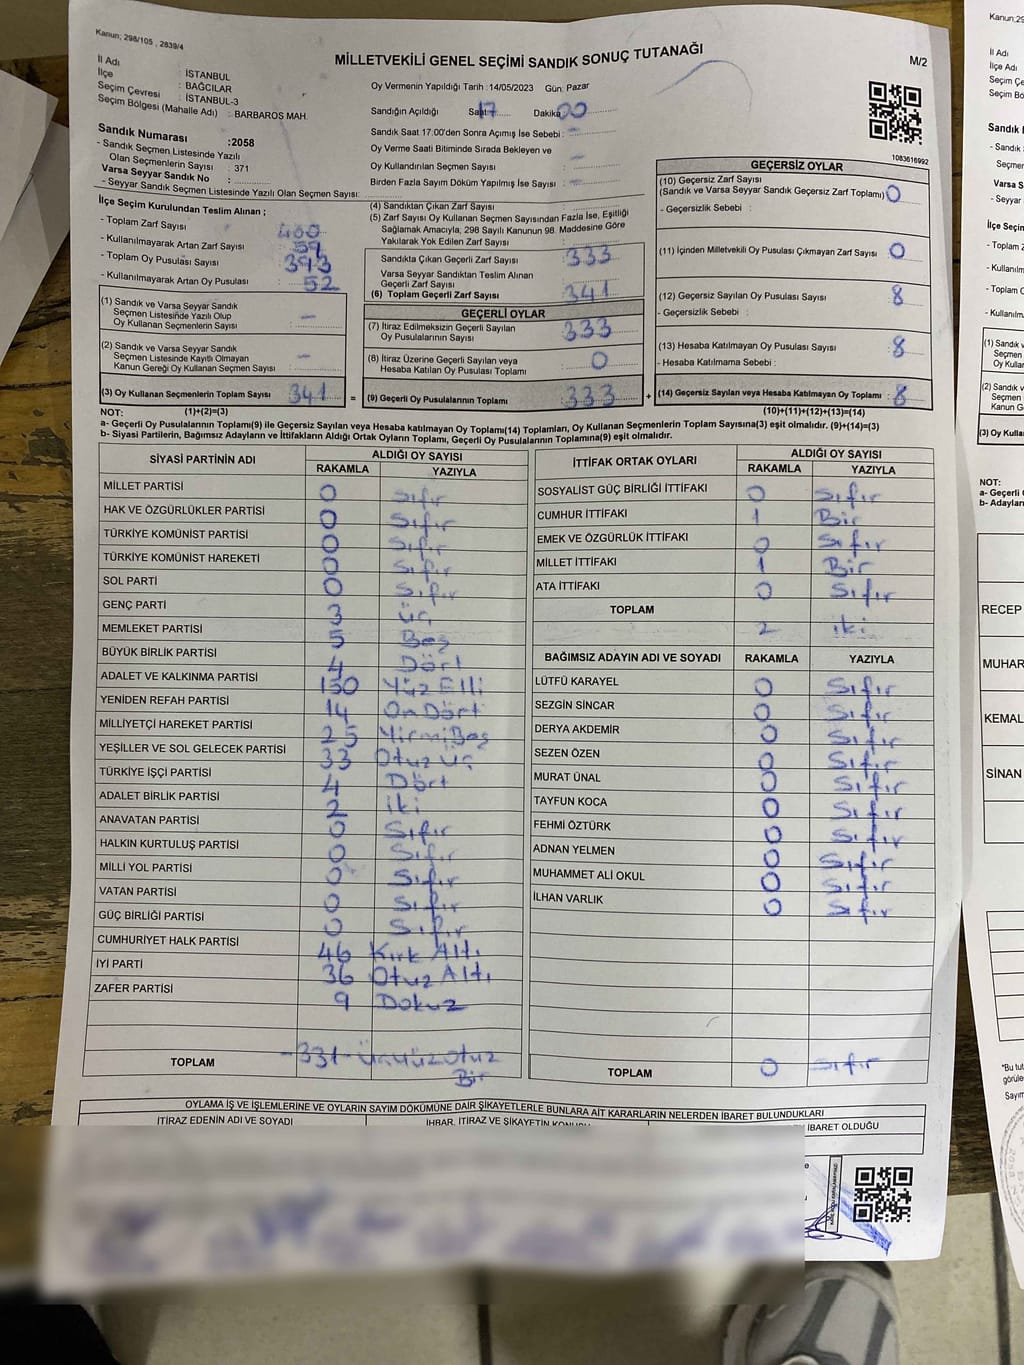 Kanun; 298/105 , 2839/4
MİLLETVEKİLİ GENEL SEÇİMİ SANDIK SONUÇ TUTANAĞI
M/2
İl Adı : İSTANBUL
İlçe : BAĞCILAR
Seçim Çevresi : İSTANBUL-3
Seçim Bölgesi (Mahalle Adı) : BARBAROS MAH.
Sandık Numarası :2058
- Sandık Seçmen Listesinde Yazılı
Olan Seçmenlerin Sayısı : 371
Varsa Seyyar Sandık No :
- Seyyar Sandık Seçmen Listesinde Yazılı Olan Seçmen Sayısı:
Oy Vermenin Yapıldığı Tarih :14/05/2023 Gün: Pazar
Sandığın Açıldığı Saat: 17 Dakika: 00
Sandık Saat 17:00'den Sonra Açımış İse Sebebi : -
Oy Verme Saati Bitiminde Sırada Bekleyen ve
Oy Kullandırılan Seçmen Sayısı : -
Birden Fazla Sayım Döküm Yapılmış İse Sayısı : -
1083616992
İlçe Seçim Kurulundan Teslim Alınan ;
- Toplam Zarf Sayısı : 400
- Kullanılmayarak Artan Zarf Sayısı : 59
- Toplam Oy Pusulası Sayısı : 393
- Kullanılmayarak Artan Oy Pusulası : 52
(1) Sandık ve Varsa Seyyar Sandık
Seçmen Listesinde Yazılı Olup
Oy Kullanan Seçmenlerin Sayısı : -
(2) Sandık ve Varsa Seyyar Sandık
Seçmen Listesinde Kayıtlı Olmayan
Kanun Gereği Oy Kullanan Seçmen Sayısı : -
(3) Oy Kullanan Seçmenlerin Toplam Sayısı : 341
(4) Sandıktan Çıkan Zarf Sayısı :
(5) Zarf Sayısı Oy Kullanan Seçmen Sayısından Fazla İse, Eşitliği
Sağlamak Amacıyla, 298 Sayılı Kanunun 98. Maddesine Göre
Yakılarak Yok Edilen Zarf Sayısı :
Sandıkta Çıkan Geçerli Zarf Sayısı : 333
Varsa Seyyar Sandıktan Teslim Alınan
Geçerli Zarf Sayısı :
(6) Toplam Geçerli Zarf Sayısı : 341
GEÇERLİ OYLAR
(7) İtiraz Edilmeksizin Geçerli Sayılan
Oy Pusulalarının Sayısı : 333
(8) İtiraz Üzerine Geçerli Sayılan veya
Hesaba Katılan Oy Pusulası Toplamı : 0
= (9) Geçerli Oy Pusulalarının Toplamı : 333 +
GEÇERSİZ OYLAR
(10) Geçersiz Zarf Sayısı
(Sandık ve Varsa Seyyar Sandık Geçersiz Zarf Toplamı) : 0
- Geçersizlik Sebebi :
(11) İçinden Milletvekili Oy Pusulası Çıkmayan Zarf Sayısı : 0
(12) Geçersiz Sayılan Oy Pusulası Sayısı : 8
- Geçersizlik Sebebi :
(13) Hesaba Katılmayan Oy Pusulası Sayısı : 8
- Hesaba Katılmama Sebebi :
(14) Geçersiz Sayılan veya Hesaba Katılmayan Oy Toplamı : 8
NOT: (1)+(2)=(3)
(10)+(11)+(12)+(13)=(14)
a- Geçerli Oy Pusulalarının Toplamı(9) ile Geçersiz Sayılan veya Hesaba katılmayan Oy Toplamı(14) Toplamları, Oy Kullanan Seçmenlerin Toplam Sayısına(3) eşit olmalıdır. (9)+(14)=(3)
b- Siyasi Partilerin, Bağımsız Adayların ve İttifakların Aldığı Ortak Oyların Toplamı, Geçerli Oy Pusulalarının Toplamına(9) eşit olmalıdır.
SİYASİ PARTİNİN ADI ALDIĞI OY SAYISI
RAKAMLA YAZIYLA
MİLLET PARTİSİ 0 Sıfır
HAK VE ÖZGÜRLÜKLER PARTİSİ 0 Sıfır
TÜRKİYE KOMÜNİST PARTİSİ 0 Sıfır
TÜRKİYE KOMÜNİST HAREKETİ 0 Sıfır
SOL PARTİ 0 Sıfır
GENÇ PARTİ 3 Üç
MEMLEKET PARTİSİ 5 Beş
BÜYÜK BİRLİK PARTİSİ 4 Dört
ADALET VE KALKINMA PARTİSİ 150 Yüz Elli
YENİDEN REFAH PARTİSİ 14 On Dört
MİLLİYETÇİ HAREKET PARTİSİ 25 Yirmi Beş
YEŞİLLER VE SOL GELECEK PARTİSİ 33 Otuz Üç
TÜRKİYE İŞÇİ PARTİSİ 4 Dört
ADALET BİRLİK PARTİSİ 2 iki
ANAVATAN PARTİSİ 0 Sıfır
HALKIN KURTULUŞ PARTİSİ 0 Sıfır
MİLLİ YOL PARTİSİ 0 Sıfır
VATAN PARTİSİ 0 Sıfır
GÜÇ BİRLİĞİ PARTİSİ 0 Sıfır
CUMHURİYET HALK PARTİSİ 46 Kırk Altı
İYİ PARTİ 36 Otuz Altı
ZAFER PARTİSİ 9 Dokuz
TOPLAM -331- Üçyüz Otuz
Bir
İTTİFAK ORTAK OYLARI ALDIĞI OY SAYISI
RAKAMLA YAZIYLA
SOSYALİST GÜÇ BİRLİĞİ İTTİFAKI 0 Sıfır
CUMHUR İTTİFAKI 1 Bir
EMEK VE ÖZGÜRLÜK İTTİFAKI 0 Sıfır
MİLLET İTTİFAKI 1 Bir
ATA İTTİFAKI 0 Sıfır
TOPLAM 2 iki
BAĞIMSIZ ADAYIN ADI VE SOYADI RAKAMLA YAZIYLA
LÜTFÜ KARAYEL 0 Sıfır
SEZGİN SİNCAR 0 Sıfır
DERYA AKDEMİR 0 Sıfır
SEZEN ÖZEN 0 Sıfır
MURAT ÜNAL 0 Sıfır
TAYFUN KOCA 0 Sıfır
FEHMİ ÖZTÜRK 0 Sıfır
ADNAN YELMEN 0 Sıfır
MUHAMMET ALİ OKUL 0 Sıfır
İLHAN VARLIK 0 Sıfır
TOPLAM 0 Sıfır
OYLAMA İŞ VE İŞLEMLERİNE VE OYLARIN SAYIM DÖKÜMÜNE DAİR ŞİKAYETLERLE BUNLARA AİT KARARLARIN NELERDEN İBARET BULUNDUKLARI
İTİRAZ EDENİN ADI VE SOYADI İHBAR, İTİRAZ VE ŞİKAYETİN KONUSU İBARET OLDUĞU
Kanun; 29
İl Adı
İlçe Adı
Seçim Çe
Seçim Bö
Sandık
- Sandık
Seçmen
Varsa S
- Seyyar
İlçe Seçin
- Toplam
- Kullanılm
- Toplam
- Kullanılm
(1) Sandık
Seçmen
Oy Kulla
(2) Sandık
Seçmen
Kanun G
(3) Oy Kulla
NOT:
a- Geçerli
b- Adayları
RECEP
MUHAR
KEMAL
SİNAN
"Bu tut
görüle
Sayım